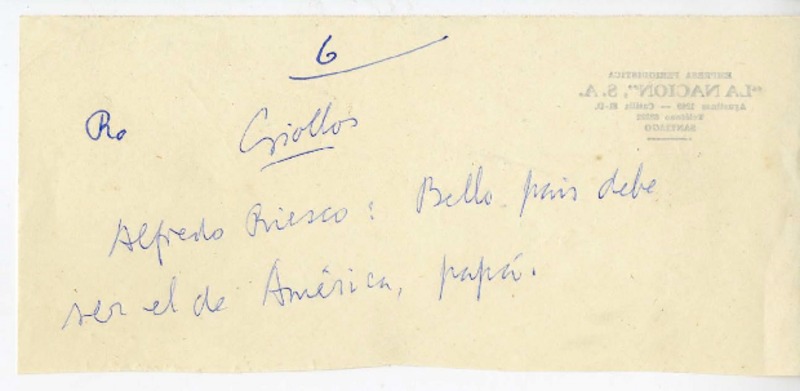 6
EMPRESA PERIODISTICA
"LA NACION", S. A.
Agustinas 1269 — Casilla 81-D.
Teléfono 82222
SANTIAGO
Ro
Criollos
Alfredo Riesco: Bello pais debe
ser el de América, papá.